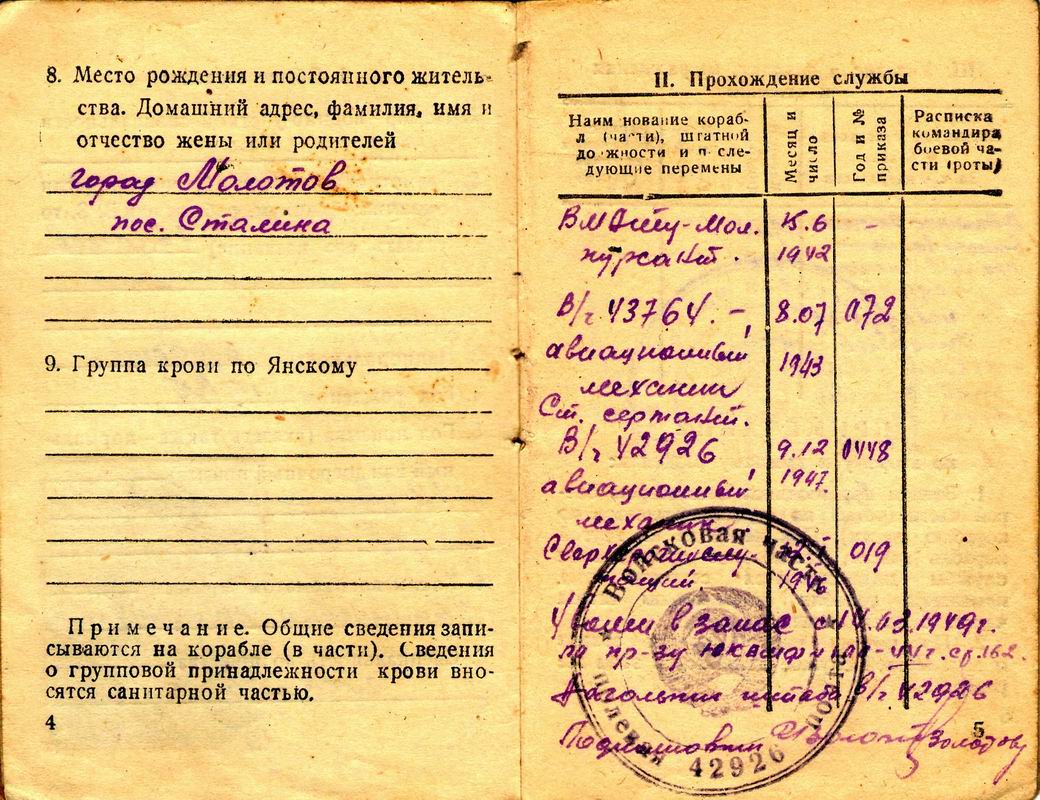 8. Место рождения и постоянного житель-
ства. Домашний адрес, фамилия, имя и
отчество жены или родителей
город Молотов
пос. Сталина
9. Группа крови по Янскому
Примечание. Общие сведения запи-
сываются на корабле (в части). Сведения
о групповой принадлежности крови вно-
сятся санитарной частью.
4
II. Прохождение службы
Наим нование кораб-
л (части), штатной
до жности и п сле-
дующие перемены
Месяц и
число
Год и №
приказа
Расписка
командира
боевой ча-
сти (роты)
15.6 -
курсант. 1942
В/ч 43764. - 8.07 072
авиационный
механик 1943
Ст. сержант.
В/ч 42926 9.12 0448
авиационный 1947.
механик
019
1946
Уволен в запас 1949г.
Начальник штаба В/ч 42926
Подполковник Золотов
5
Войсковая часть
полевая почта
42926